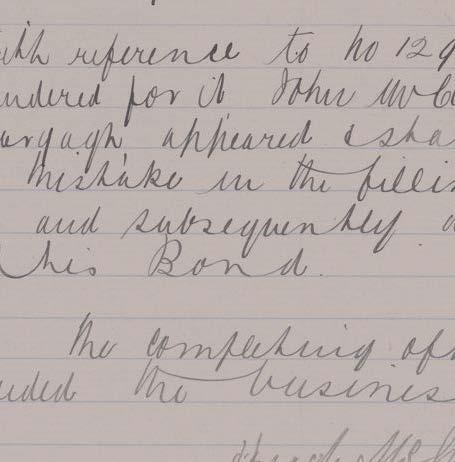 with reference to No 129
endered for it John McC
urgagh appeared & sha
mistake in the fillin
and subsequently
his Bond.
The completing of
uded the business